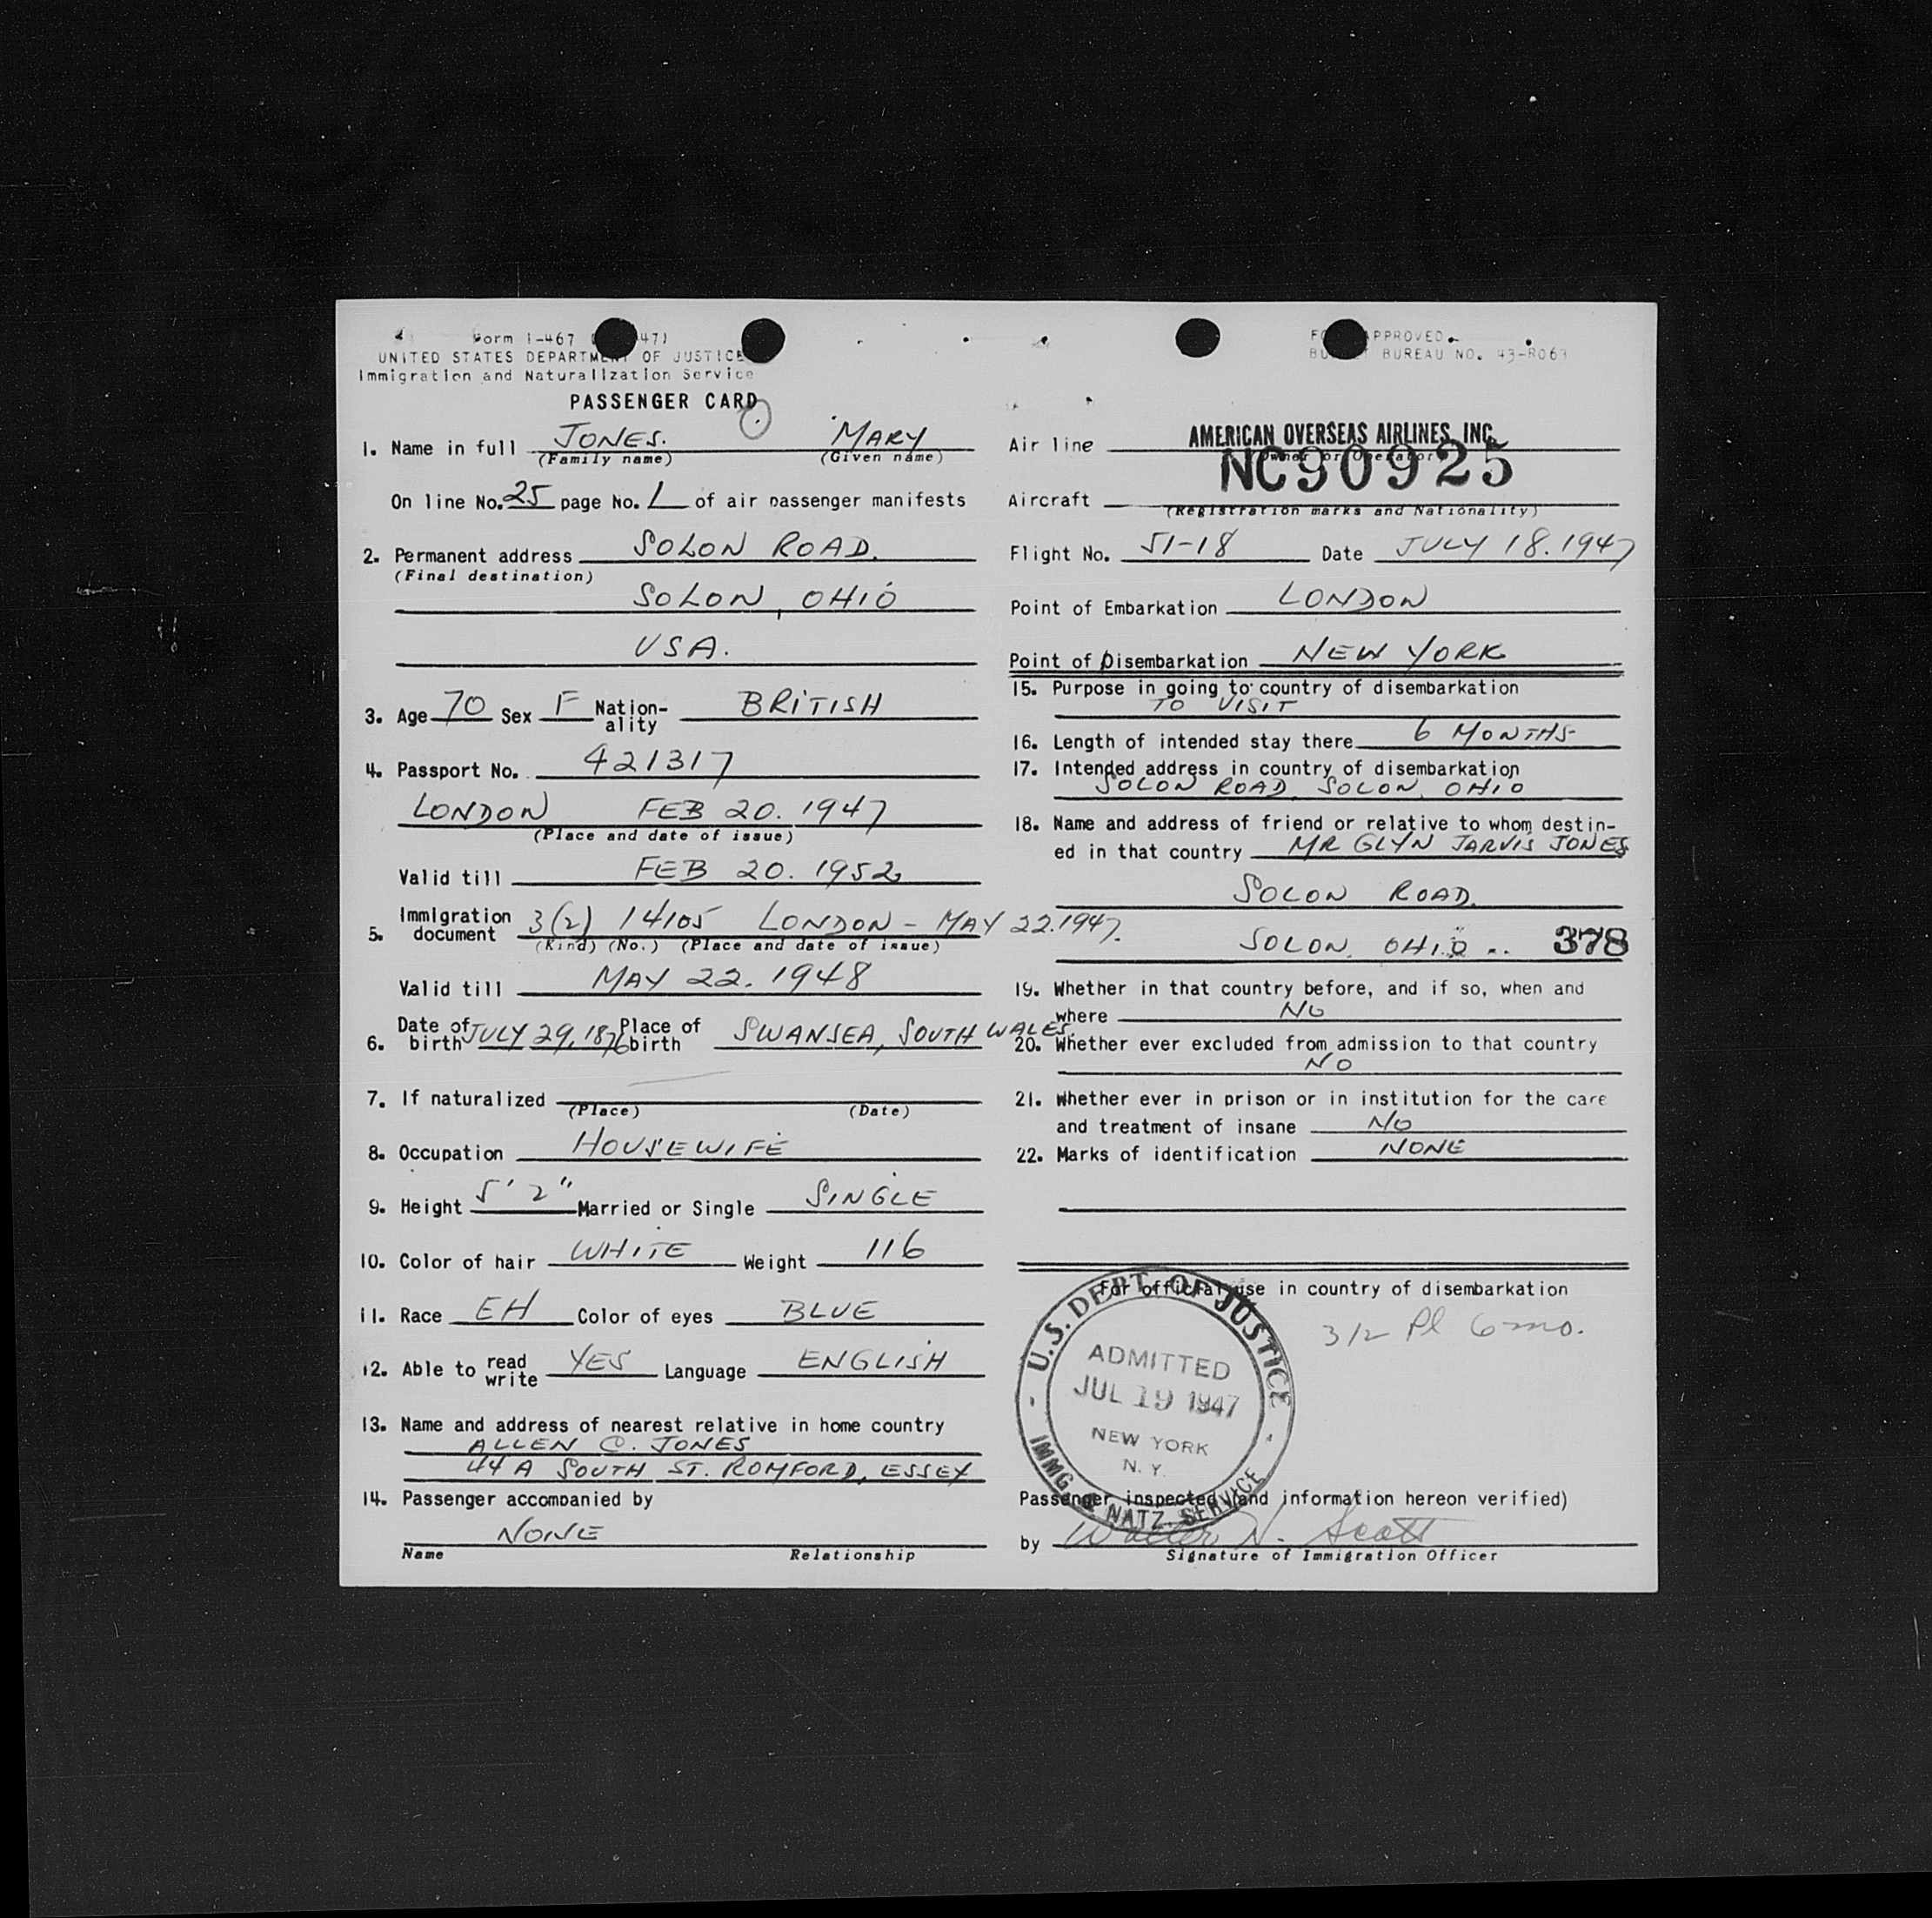 Form I-467 47)
UNITED STATES DEPARTMENT OF JUSTICE
Immigration and Naturalization Service
PASSENGER CARD
1. Name in full JONES. MARY
(Family name) (Given name)
On line No. 25 page No. 1 of air passenger manifests
2. Permanent address SOLON ROAD.
(Final destination)
SOLON, OHIO
USA.
3. Age 70 Sex F Nation-ality BRITISH
4. Passport No. 421317
LONDON FEB 20. 1947
(Place and date of issue)
Valid till FEB 20. 1952
5. Immigration document 3(2) 14105 LONDON - MAY 22.1947.
(Kind) (No.) (Place and date of issue)
Valid till MAY 22. 1948
6. Date of birth JULY 29, 1876 Place of birth SWANSEA, SOUTH WALES.
7. If naturalized
(Place) (Date)
8. Occupation HOUSEWIFE
9. Height 5' 2" Married or Single SINGLE
10. Color of hair WHITE Weight 116
11. Race EH Color of eyes BLUE
12. Able to read write YES Language ENGLISH
13. Name and address of nearest relative in home country
ALLEN C. JONES
44A SOUTH ST. ROMFORD, ESSEX
14. Passenger accompanied by
NONE
Name Relationship
APPROVED.
BUREAU NO. 43-R063
Air line AMERICAN OVERSEAS AIRLINES, INC.
Owner or Operator
NC90925
Aircraft
(Registration marks and Nationality)
Flight No. 51-18 Date JULY 18. 1947
Point of Embarkation LONDON
Point of Disembarkation NEW YORK
15. Purpose in going to country of disembarkation
TO VISIT
16. Length of intended stay there 6 MONTHS
17. Intended address in country of disembarkation
SOLON ROAD, SOLON, OHIO
18. Name and address of friend or relative to whom destin-
ed in that country MR GLYN JARVIS JONES
SOLON ROAD.
SOLON, OHIO .. 378
19. Whether in that country before, and if so, when and
where NO
20. Whether ever excluded from admission to that country
NO
21. Whether ever in prison or in institution for the care
and treatment of insane NO
22. Marks of identification NONE
For official use in country of disembarkation
3/2 Pl 6 mo.
U.S. DEPT. OF JUSTICE
ADMITTED
JUL 19 1947
NEW YORK
N. Y.
IMMG. & NATZ. SERVICE
Passenger inspected (and information hereon verified)
by Walter N. Scott
Signature of Immigration Officer